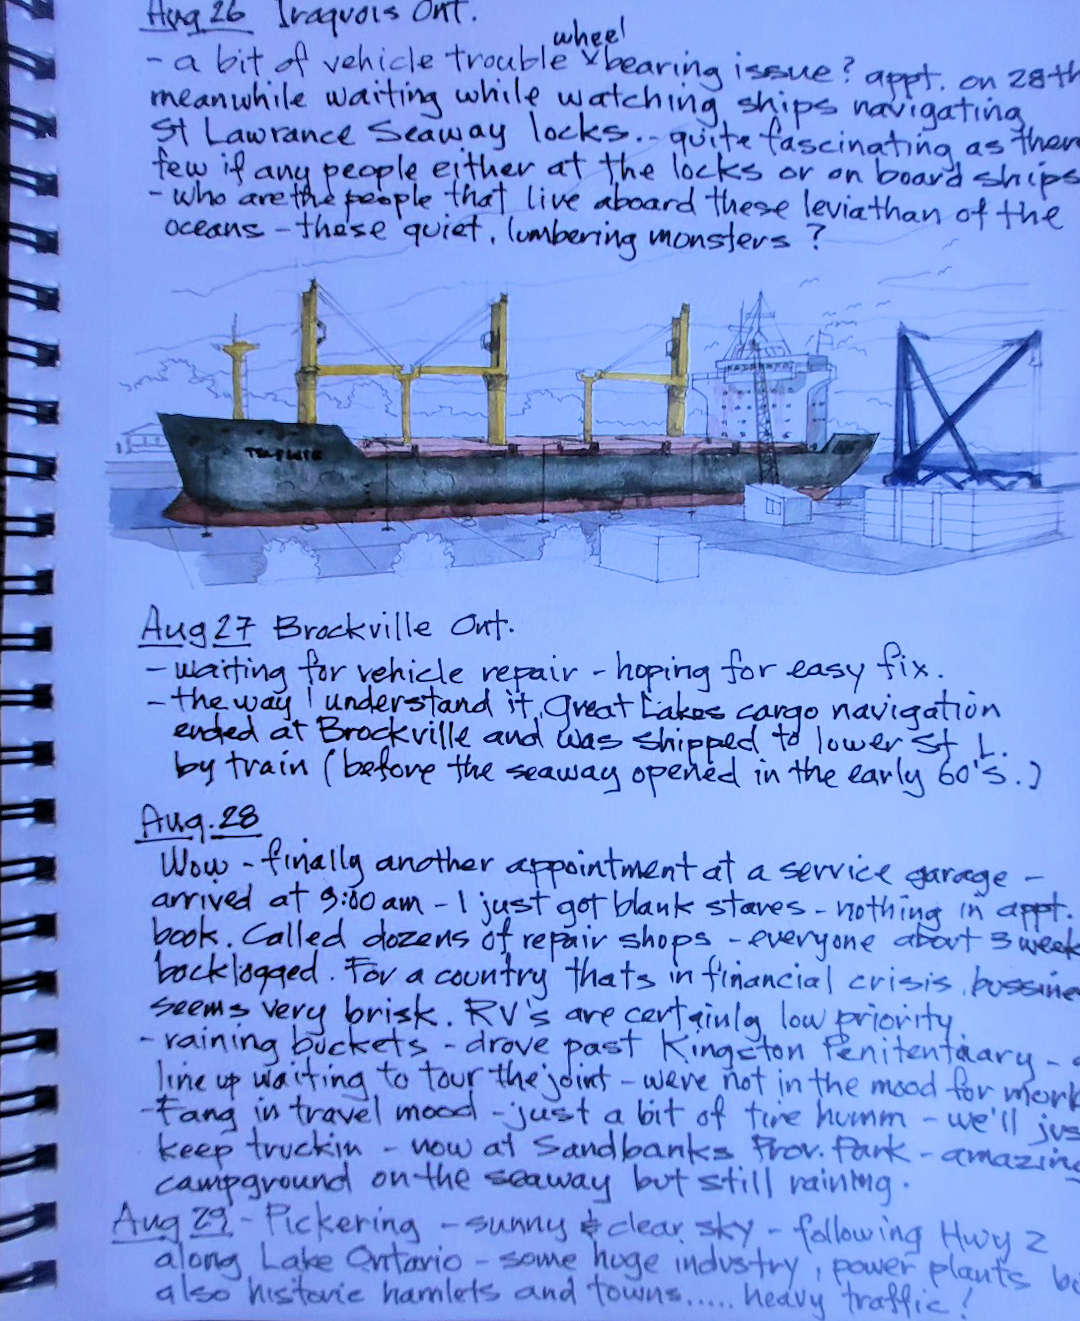 Aug 26 Iraquois Ont.
- a bit of vehicle trouble wheel bearing issue? appt. on 28th
meanwhile waiting while watching ships navigating
St Lawrance Seaway locks.. quite fascinating as ther
few if any people either at the locks or on board ships
- who are the people that live aboard these leviathan of the
oceans - these quiet, lumbering monsters ?
Aug 27 Brockville Ont.
- waiting for vehicle repair - hoping for easy fix.
- the way I understand it, Great Lakes cargo navigation
ended at Brockville and was shipped to lower St L.
by train (before the seaway opened in the early 60's.)
Aug. 28
Wow - finally another appointment at a service garage -
arrived at 9:00 am - I just got blank stares - nothing in appt.
book. Called dozens of repair shops - everyone about 3 week
backlogged. For a country thats in financial crisis, bussine
seems very brisk. RV's are certainly low priority
- raining buckets - drove past Kingston Penitentiary -
line up waiting to tour the joint - were not in the mood for mork
- Fang in travel mood - just a bit of tire humm - we'll jus
keep truckin - now at Sandbanks Prov. Park - amazing
campground on the seaway but still raining.
Aug 29 - Pickering - sunny & clear sky - following Hwy 2
along Lake Ontario - some huge industry, power plants bu
also historic hamlets and towns..... heavy traffic!